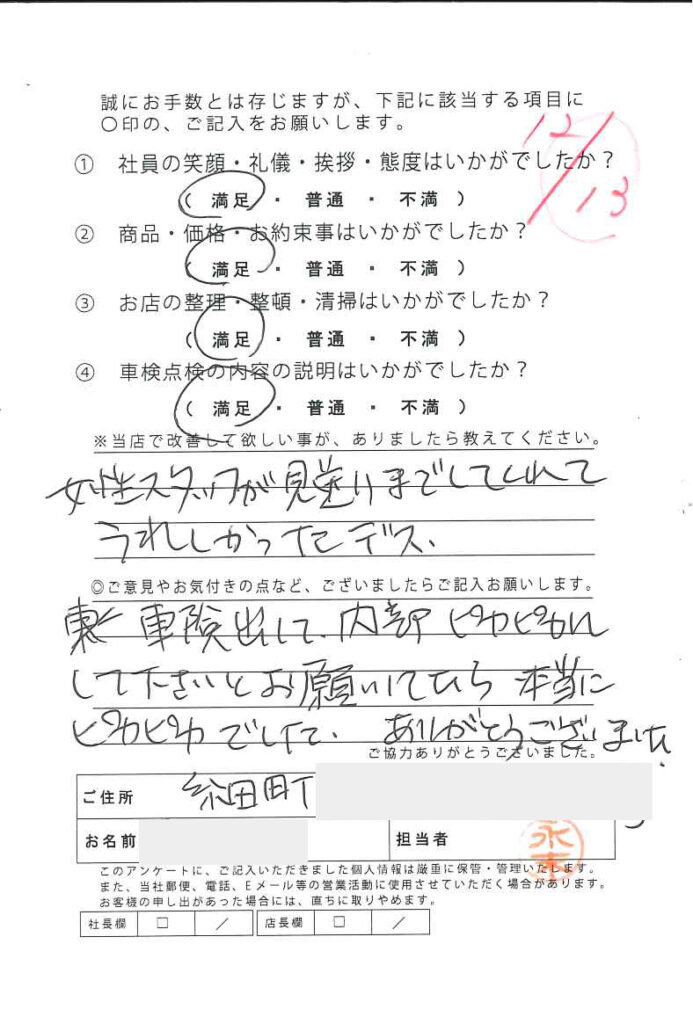 誠にお手数とは存じますが、下記に該当する項目に
〇印の、ご記入をお願いします。
12/13
① 社員の笑顔・礼儀・挨拶・態度はいかがでしたか？
( 満足 ・ 普通 ・ 不満 )
② 商品・価格・お約束事はいかがでしたか？
( 満足 ・ 普通 ・ 不満 )
③ お店の整理・整頓・清掃はいかがでしたか？
( 満足 ・ 普通 ・ 不満 )
④ 車検点検の内容の説明はいかがでしたか？
( 満足 ・ 普通 ・ 不満 )
※当店で改善して欲しい事が、ありましたら教えてください。
女性スタッフが見送りまでしてくれて
うれしかったデス、
◎ご意見やお気付きの点など、ございましたらご記入お願いします。
車険出して、内部ピカピカに
して下さいとお願いしてたら本当に
ピカピカでした、ありがとうございました。
ご協力ありがとうございました。
ご住所
田町
お名前
担当者
このアンケートに、ご記入いただきました個人情報は厳重に保管・管理いたします。
また、当社郵便、電話、Eメール等の営業活動に使用させていただく場合があります。
お客様の申し出があった場合には、直ちに取りやめます。
社長欄 □ ／ 店長欄 □ ／